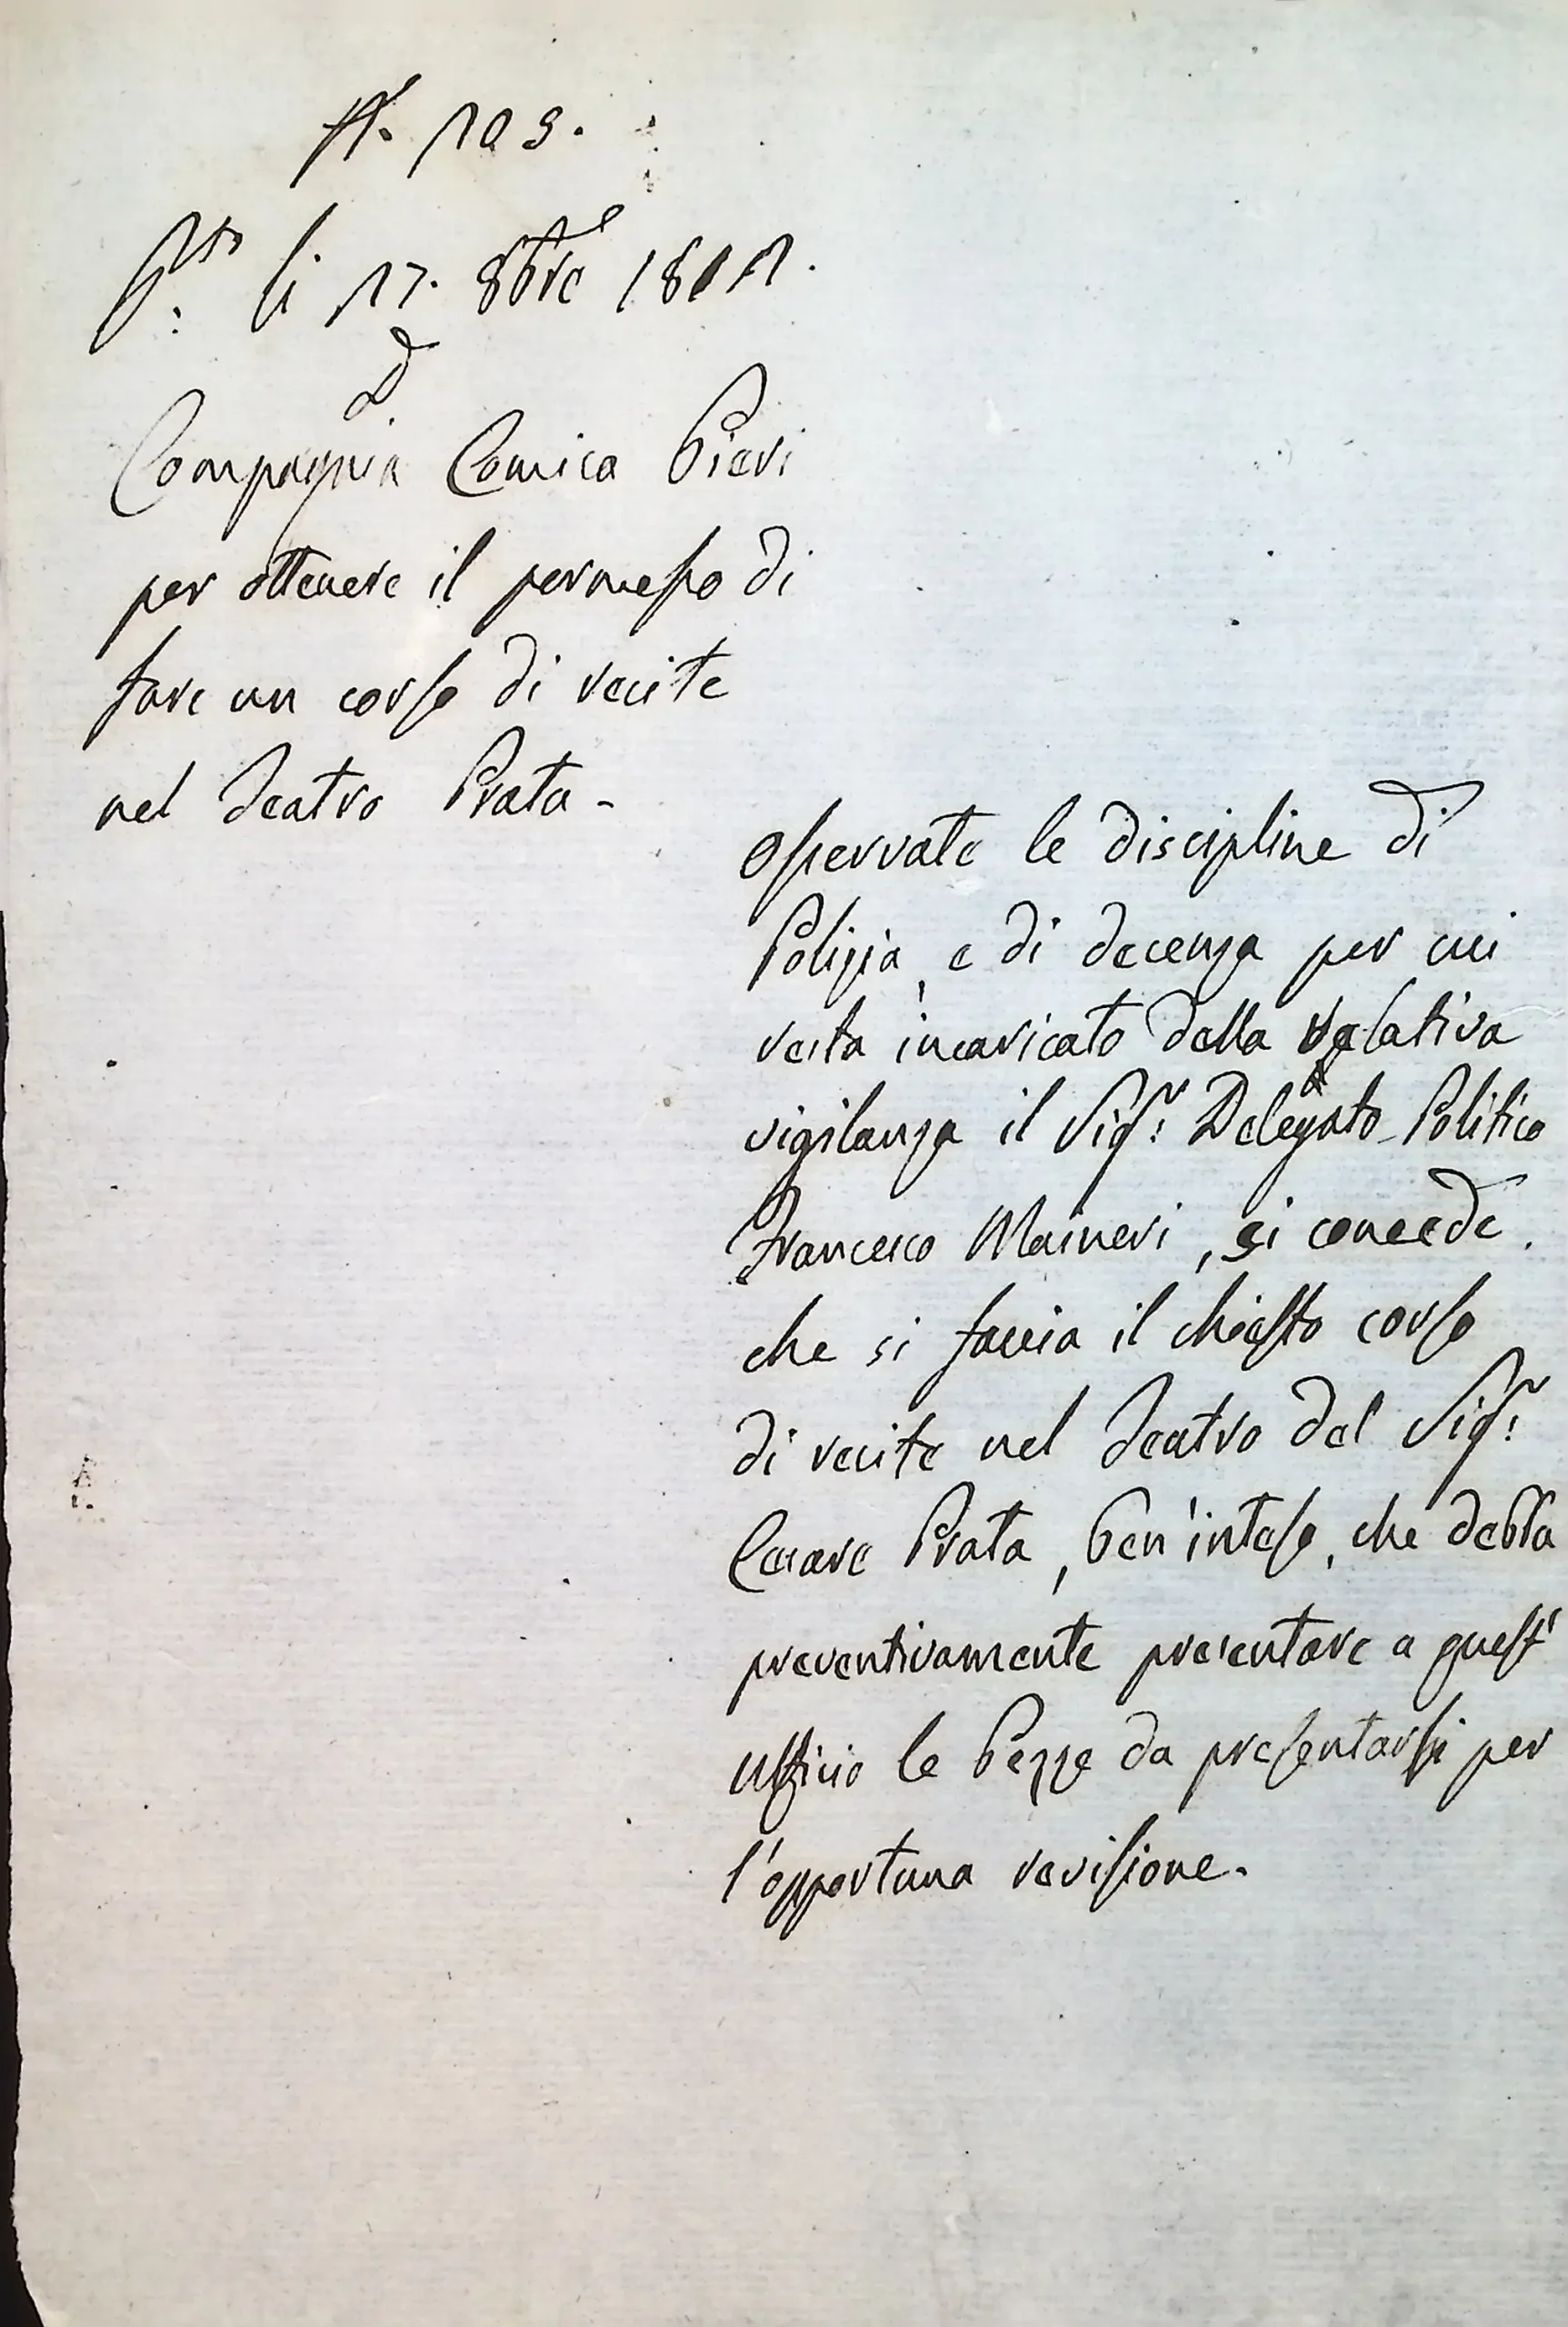 N. 109.
P.to li 17. 8bre 1811.
D
Compagnia Comica Pieri
per ottenere il permesso di
fare un corso di recite
nel Teatro Prata -
Osservate le discipline di
Polizia, e di decenza per cui
resta incaricato della relativa
vigilanza il Sig.r Delegato Politico
Francesco Maineri, si concede
che si faccia il chiesto corso
di recite nel Teatro del Sig.r
Cesare Prata, ben'inteso, che debba
preventivamente presentare a quest'
Ufficio le Pezze da presentarsi per
l'opportuna revisione.